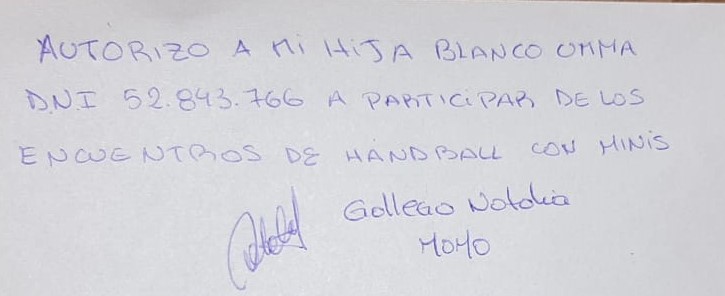 AUTORIZO A MI HIJA BLANCO EMMA
DNI 52.843.766 A PARTICIPAR DE LOS
ENCUENTROS DE HANDBALL CON MINIS
Gallego Natalia
MOMO